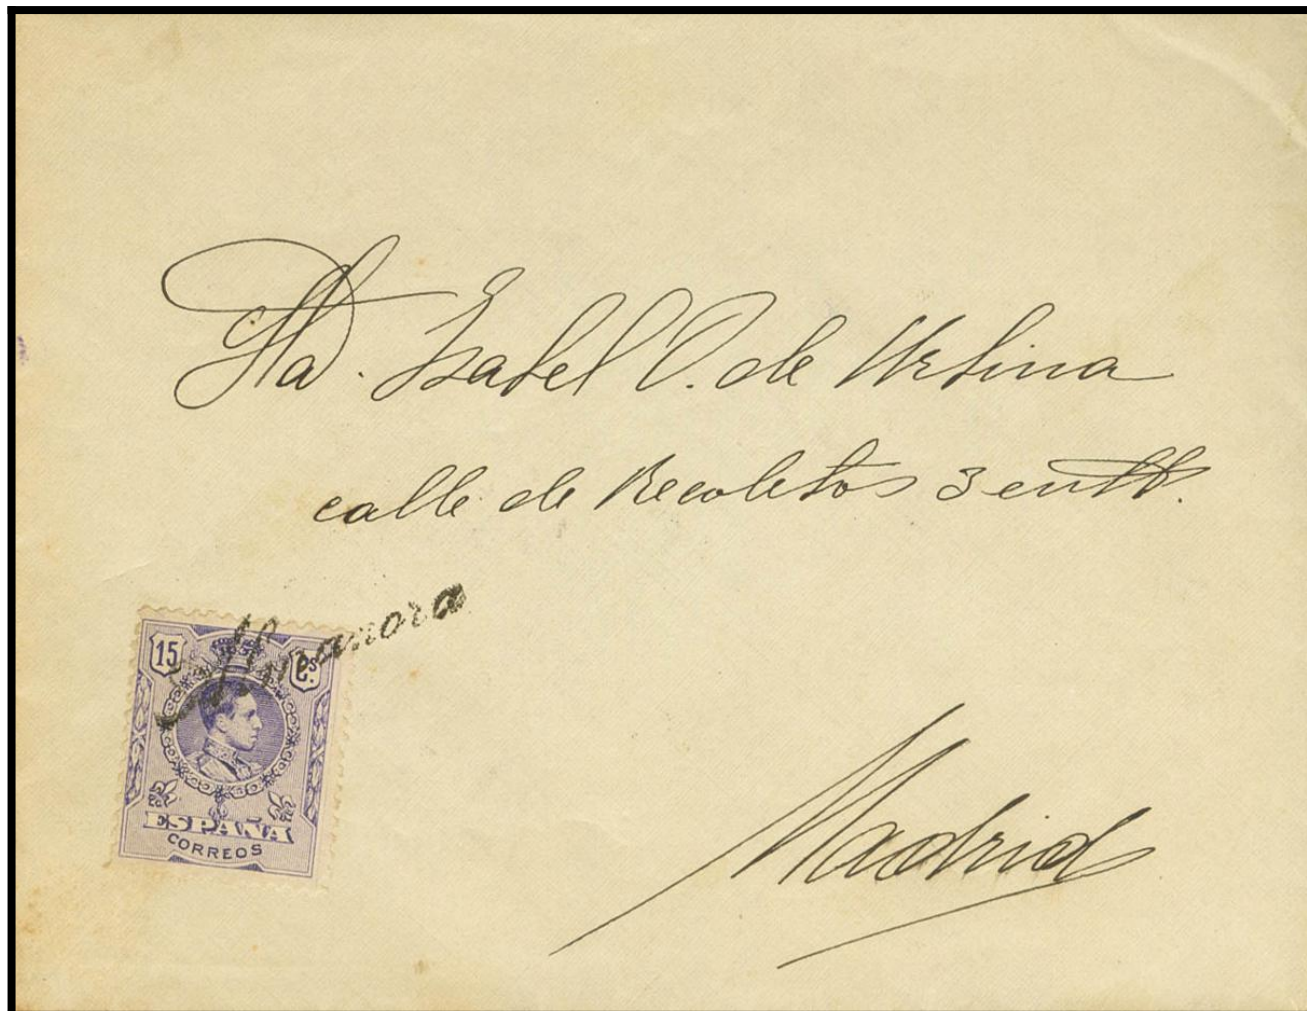 Sta. Isabel O. de Urbina
calle de Recoletos 3 entlo.
15 Cs.
ESPAÑA
CORREOS
Madrid